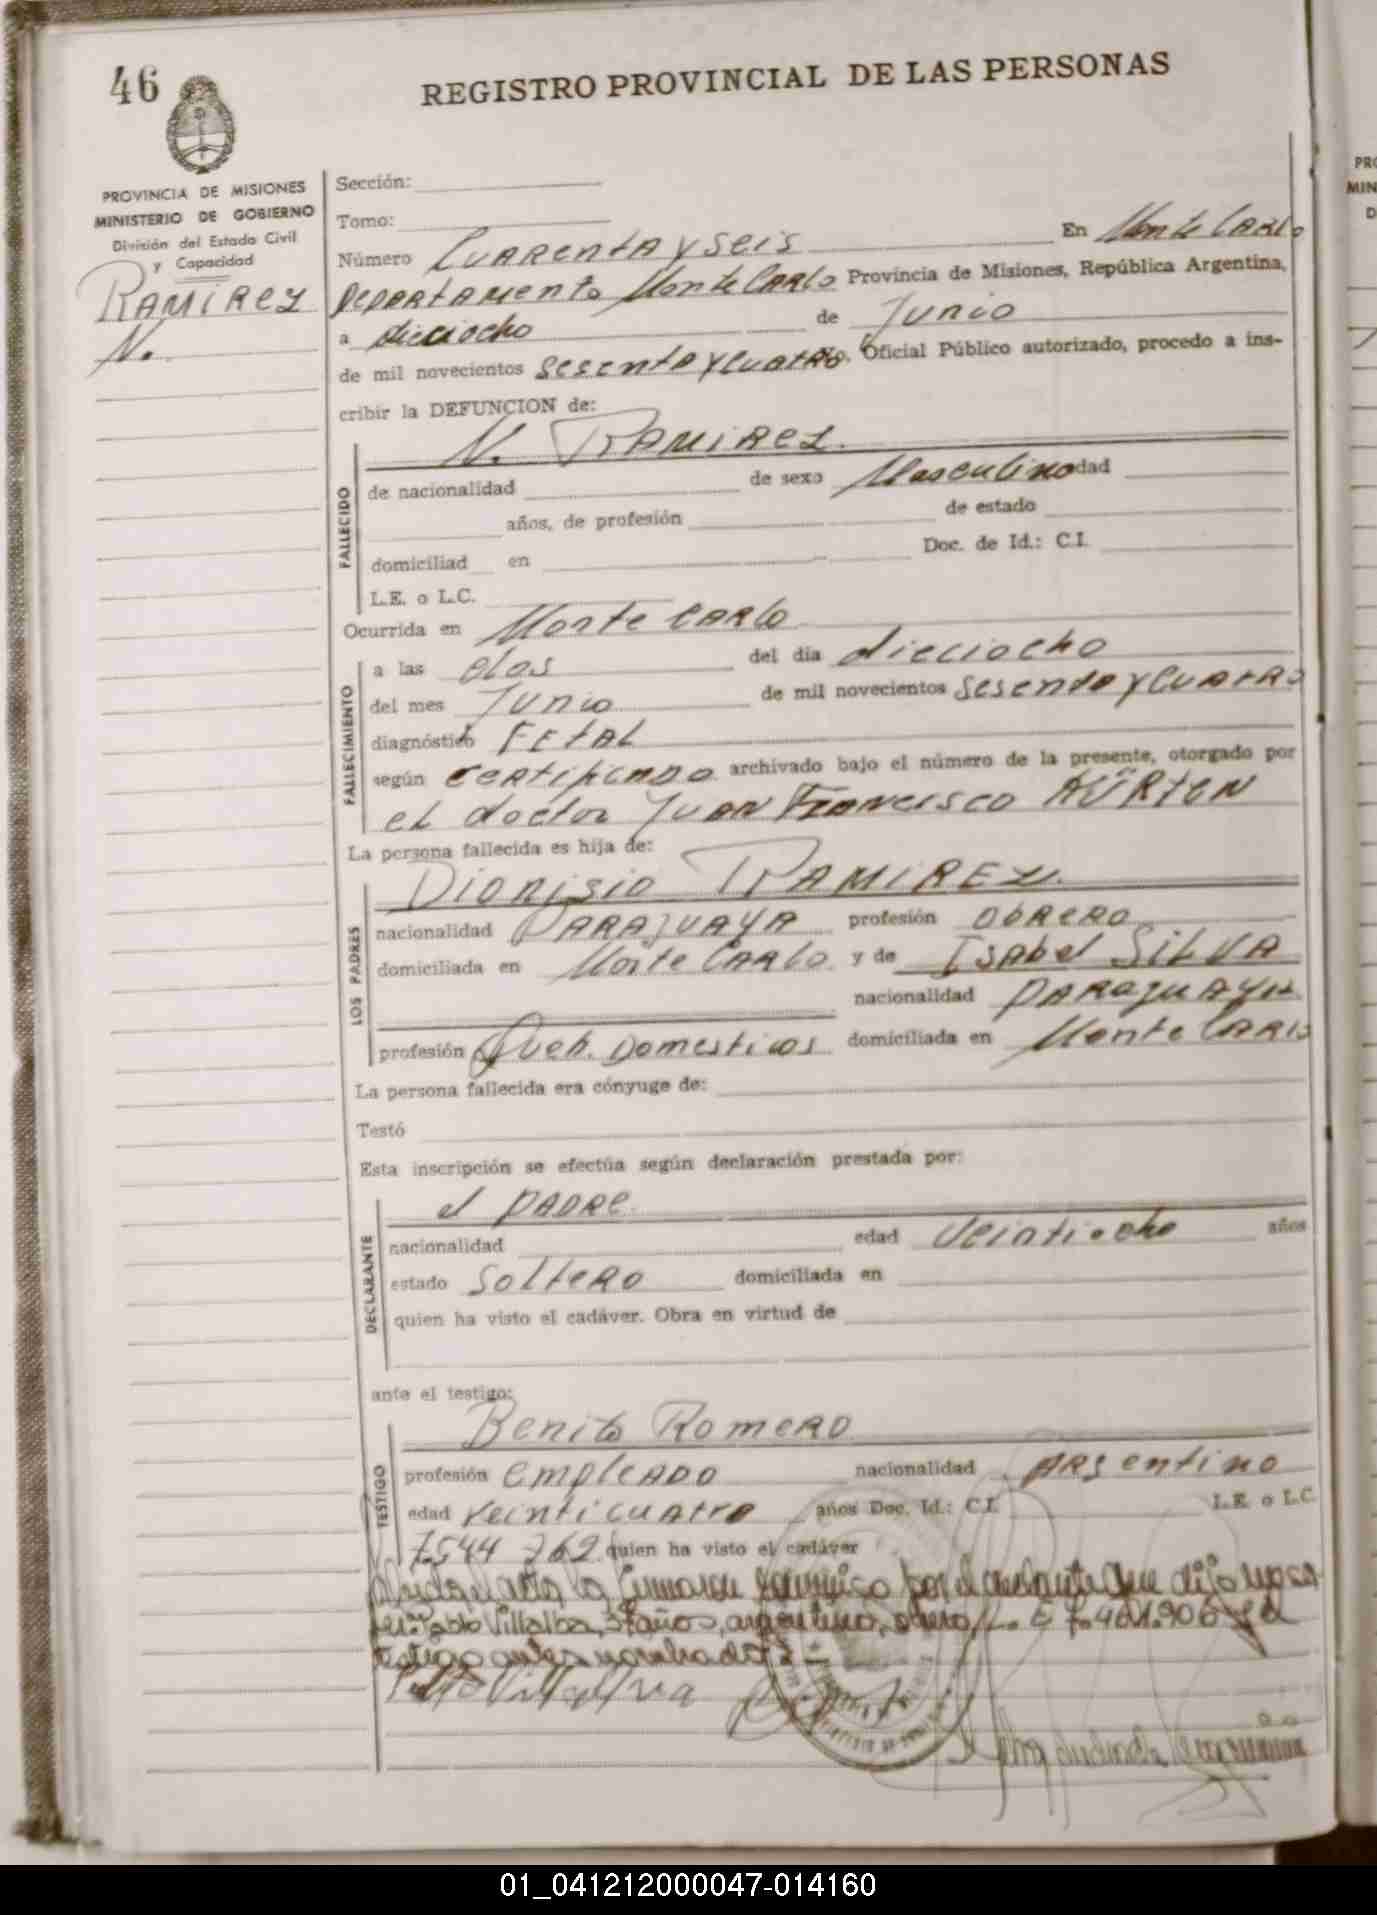 46
REGISTRO PROVINCIAL DE LAS PERSONAS
PROVINCIA DE MISIONES
MINISTERIO DE GOBIERNO
División del Estado Civil
y Capacidad
RAMIREZ
N.
Sección:
Tomo:
Número CUARENTA Y SEIS En Monte CARLO
DEPARTAMENTO Monte CARLO Provincia de Misiones, República Argentina,
a dieciocho de JUNIO
de mil novecientos SESENTA Y CUATRO, Oficial Público autorizado, procedo a ins-
cribir la DEFUNCION de:
N. RAMIREZ.
FALLECIDO
de nacionalidad de sexo Masculino edad
años, de profesión de estado
domiciliad en Doc. de Id.: C.I.
L.E. o L.C.
Ocurrida en Monte CARLO
FALLECIMIENTO
a las dos del día dieciocho
del mes JUNIO de mil novecientos SESENTA Y CUATRO
diagnóstico FETAL
según CERTIFICADO archivado bajo el número de la presente, otorgado por
el doctor JUAN FRANCISCO KÜRTEN
La persona fallecida es hija de:
LOS PADRES
Dionisio RAMIREZ.
nacionalidad PARAGUAYA profesión OBRERO
domiciliada en Monte CARLO y de ISABEL SILVA
nacionalidad PARAGUAYA
profesión Queh. Domesticos domiciliada en Monte CARLO
La persona fallecida era cónyuge de:
Testó
Esta inscripción se efectúa según declaración prestada por:
DECLARANTE
el PADRE.
nacionalidad edad Veintiocho años
estado SOLTERO domiciliada en
quien ha visto el cadáver. Obra en virtud de
ante el testigo:
TESTIGO
Benito ROMERO
profesión EMPLEADO nacionalidad ARGENTINO
edad VEINTICUATRO años Doc. Id.: C.I. L.E. o L.C.
7544 762 quien ha visto el cadáver
Leida el acta la firman conmigo por el declarante que dijo no sa
Pablo Villalba, 37 años, argentino, obrero, L. E 7.461.906 y el
testigo antes nombrado
Pablo Villalva
01_041212000047-014160